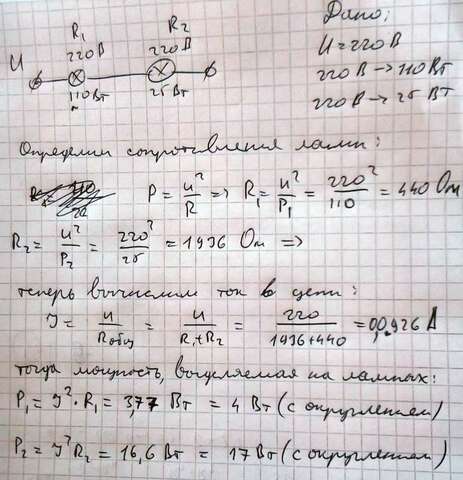 R₁ R₂ Дано:
220В 220В
U U = 220 В
110Вт 25Вт 220 В → 110 Вт
220 В → 25 Вт
Определим сопротивления ламп:
P = U²/R => R₁ = U²/P₁ = 220²/110 = 440 Ом
R₂ = U²/P₂ = 220²/25 = 1936 Ом =>
теперь вычислим ток в цепи:
I = U/Rобщ = U/R₁+R₂ = 220/1936+440 = 0,0926 А
тогда мощность, выделяемая на лампах:
P₁ = I²·R₁ = 3,77 Вт = 4 Вт (с округлением)
P₂ = I²R₂ = 16,6 Вт = 17 Вт (с округлением)